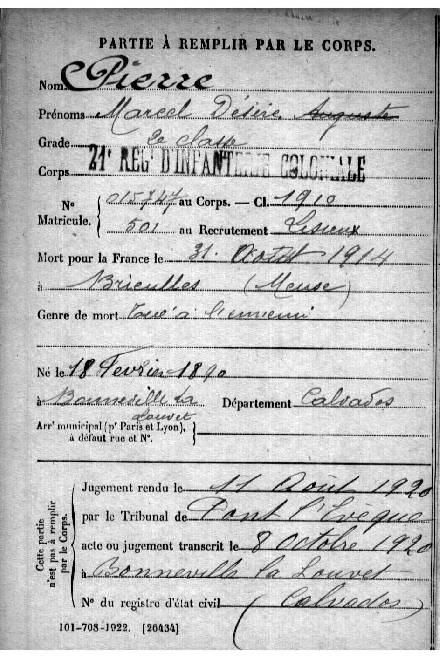 PARTIE À REMPLIR PAR LE CORPS.
Nom Pierre
Prénoms Marcel Désiré Auguste
Grade 2e classe
Corps 21e REGt D'INFANTERIE COLONIALE
No Matricule. { 015747 au Corps. — Cl. 1910
501 au Recrutement Lisieux
Mort pour la France le 31 Août 1914
à Brieulles (Meuse)
Genre de mort Tué à l'ennemi
Né le 18 Février 1890
à Bonneville la Louvet Département Calvados
Arrt municipal (pr Paris et Lyon), à défaut rue et No. {
Cette partie n'est pas à remplir par le Corps.
Jugement rendu le 11 Août 1920
par le Tribunal de Pont l'Eveque
acte ou jugement transcrit le 8 Octobre 1920
à Bonneville la Louvet
No du registre d'état civil (Calvados)
101-708-1922. [26434]